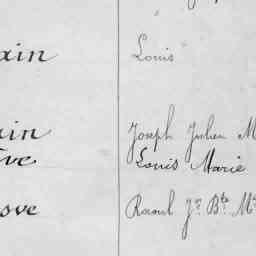 ain Louis
ain Joseph Julien M
ève Louis Marie
ove Raoul Jn Bte Me